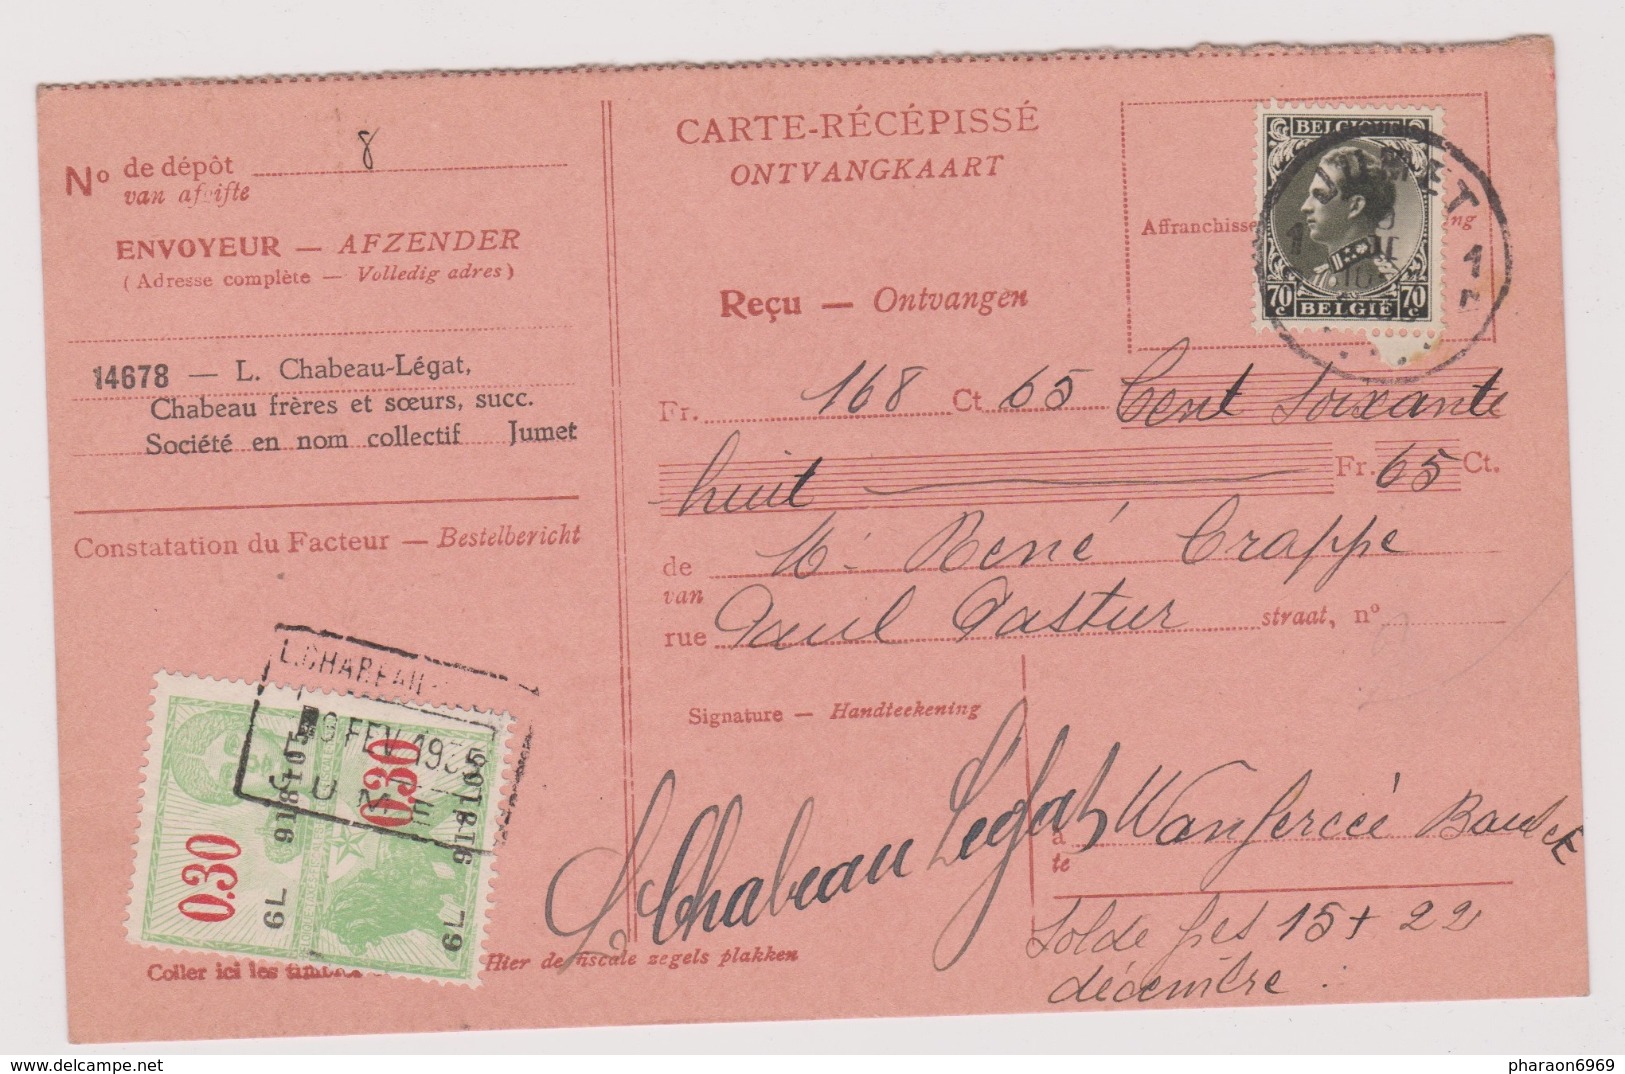 CARTE-RÉCÉPISSÉ
ONTVANGKAART
No de dépôt 8
van afgifte
ENVOYEUR — AFZENDER
(Adresse complète — Volledig adres)
14678 — L. Chabeau-Légat,
Chabeau frères et sœurs, succ.
Société en nom collectif Jumet
Constatation du Facteur — Bestelbericht
L. CHABEAU
9 FEV 1935
JUMET
0.30
0.30
918105
918105
6L
6L
Coller ici les timbres
Hier de fiscale zegels plakken
BELGIQUE
70 c
70 c
BELGIË
JUMET
1
1
Affranchisse
ng
Reçu — Ontvangen
Fr. 168 Ct 65 Cent Soixante
huit Fr. 65 Ct.
de Mr René Crappe
van
rue Paul Pastur straat, nº
Signature — Handteekening
L Chabeau Légat
à Wanfercée Baulet
te
Solde 15 + 22
décembre
delcampe.net
pharaon6969